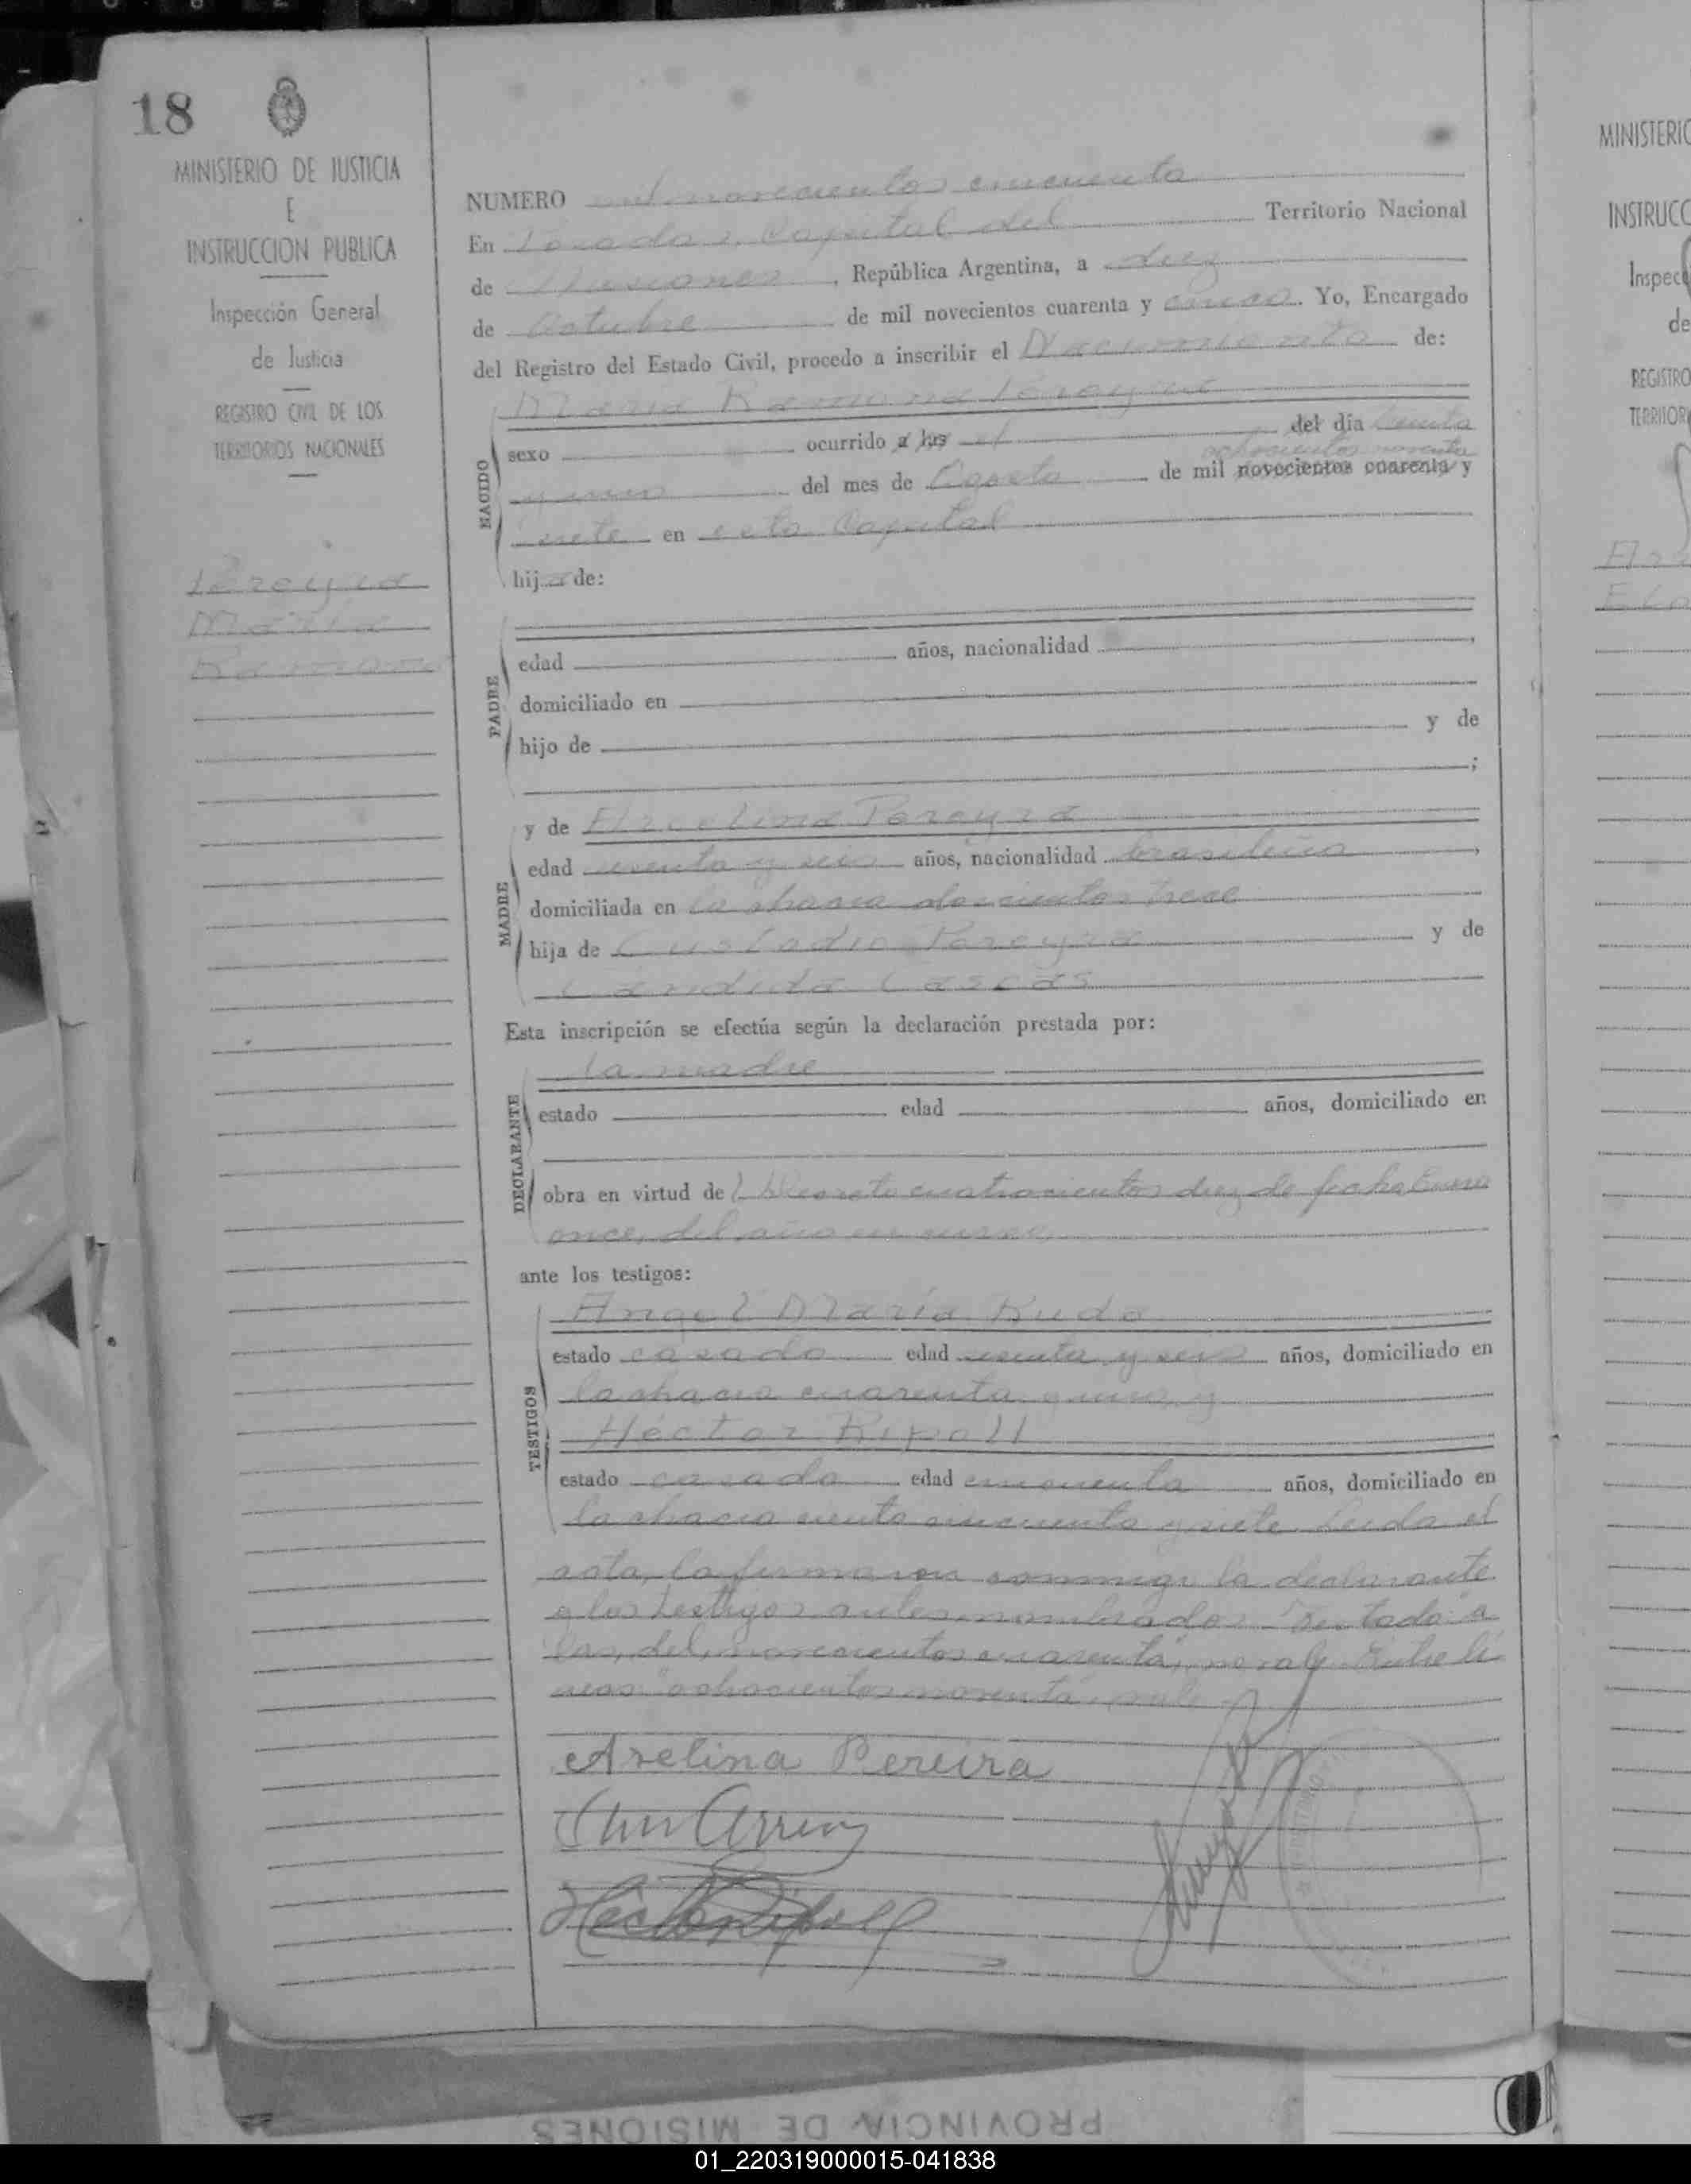 18
MINISTERIO DE JUSTICIA
E
INSTRUCCION PUBLICA
Inspección General
de Justicia
REGISTRO CIVIL DE LOS
TERRITORIOS NACIONALES
Pereyra
María
Ramona
NUMERO mil novecientos cincuenta
En Posadas, Capital del Territorio Nacional
de Misiones, República Argentina, a diez
de Octubre de mil novecientos cuarenta y cinco. Yo, Encargado
del Registro del Estado Civil, procedo a inscribir el Nacimiento de:
María Ramona Pereyra
NACIDO
sexo ocurrido a las el del día treinta
ochocientos noventa
y uno del mes de Agosto de mil novecientos cuarenta y
siete en esta Capital
hija de:
PADRE
edad años, nacionalidad
domiciliado en
hijo de y de
;
MADRE
y de Arcelina Pereyra
edad y seis años, nacionalidad brasileña,
domiciliada en la chacra doscientos trece
hija de Custodio Pereyra y de
Candida
Esta inscripción se efectúa según la declaración prestada por:
DECLARANTE
la madre
estado edad años, domiciliado en
obra en virtud del Decreto cuatrocientos diez de fecha Enero
once, del año en curso,
ante los testigos:
TESTIGOS
Angel María
estado casado edad y seis años, domiciliado en
la chacra cuarenta y uno, y
Héctor Ripoll
estado casado edad cincuenta años, domiciliado en
la chacra ciento cincuenta y siete. Leida el
acta, la firmaron conmigo la declarante
y los testigos antes nombrados. Testado "a
las, del, novecientos cuarenta", no vale. Entre lí
neas "ochocientos noventa", vale.
Arelina Pereira
MINISTERIO
INSTRUCC
Inspec
de
REGISTRO
TERRITOR
PROVINCIA DE MISIONES
01_220319000015-041838